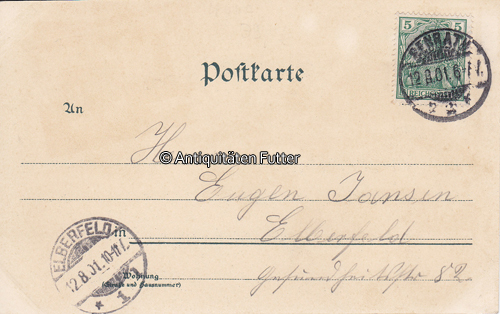 5 5
REICHSPOST
BENRATH
12.8.01.6-7 N.
Postkarte
An
H
© Antiquitäten Futter
Eugen Jansen
in Elberfeld
ELBERFELD
12.8.01.10-11 N.
1
Wohnung
(Straße und Hausnummer)